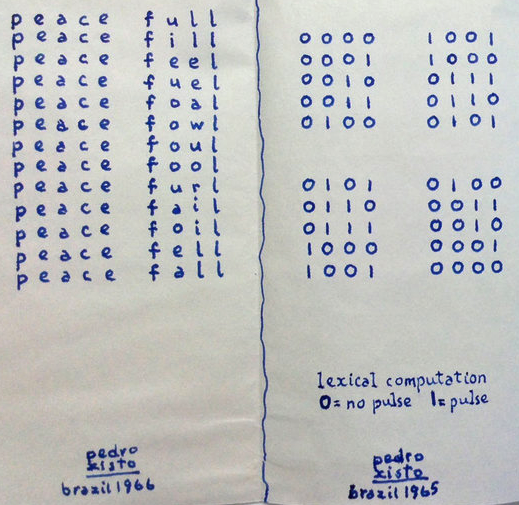 peace full
peace fill
peace feel
peace fuel
peace foal
peace fowl
peace foul
peace fool
peace furl
peace fail
peace foil
peace fell
peace fall
pedro
xisto
brazil 1966
0 0 0 0 1 0 0 1
0 0 0 1 1 0 0 0
0 0 1 0 0 1 1 1
0 0 1 1 0 1 1 0
0 1 0 0 0 1 0 1
0 1 0 1 0 1 0 0
0 1 1 0 0 0 1 1
0 1 1 1 0 0 1 0
1 0 0 0 0 0 0 1
1 0 0 1 0 0 0 0
lexical computation
0=no pulse 1=pulse
pedro
xisto
brazil 1965